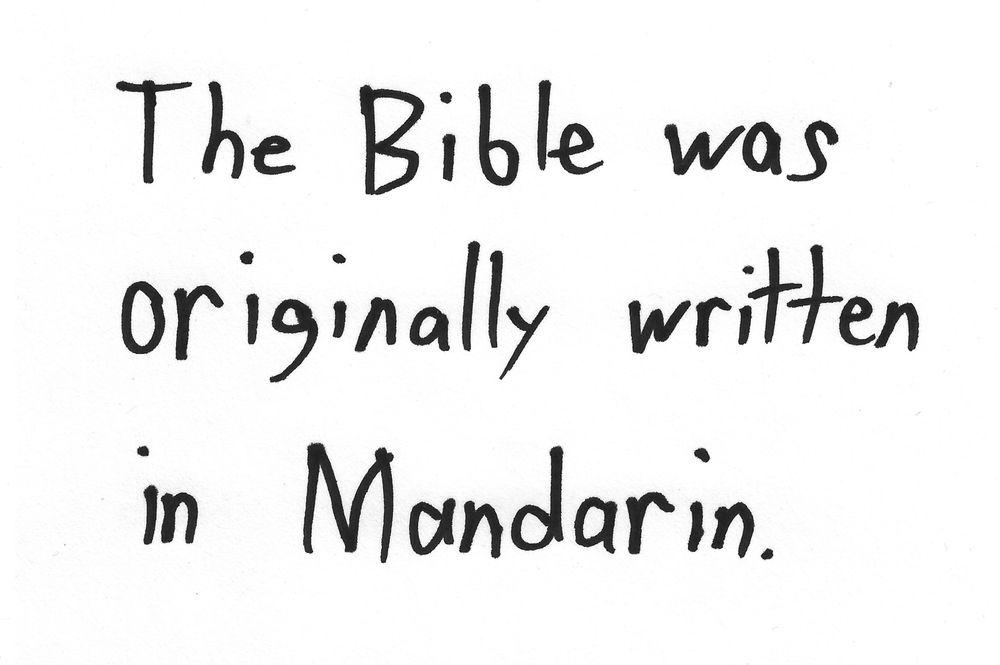 The Bible was
originally written
in Mandarin.